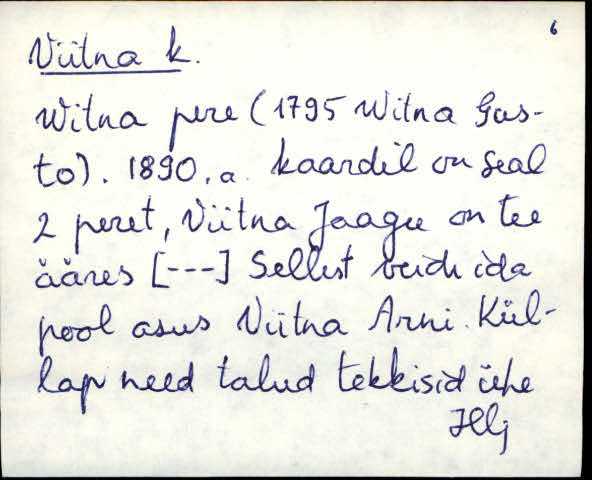 6
Viitna k.
Witna pere (1795 Witna Gus-
to). 1890. a. kaardil on seal
2 peret, Viitna Jaagu on tee
ääres [---] Sellest veidi ida
pool asus Viitna Arni. Kül-
lap need talud tekkisid ühe